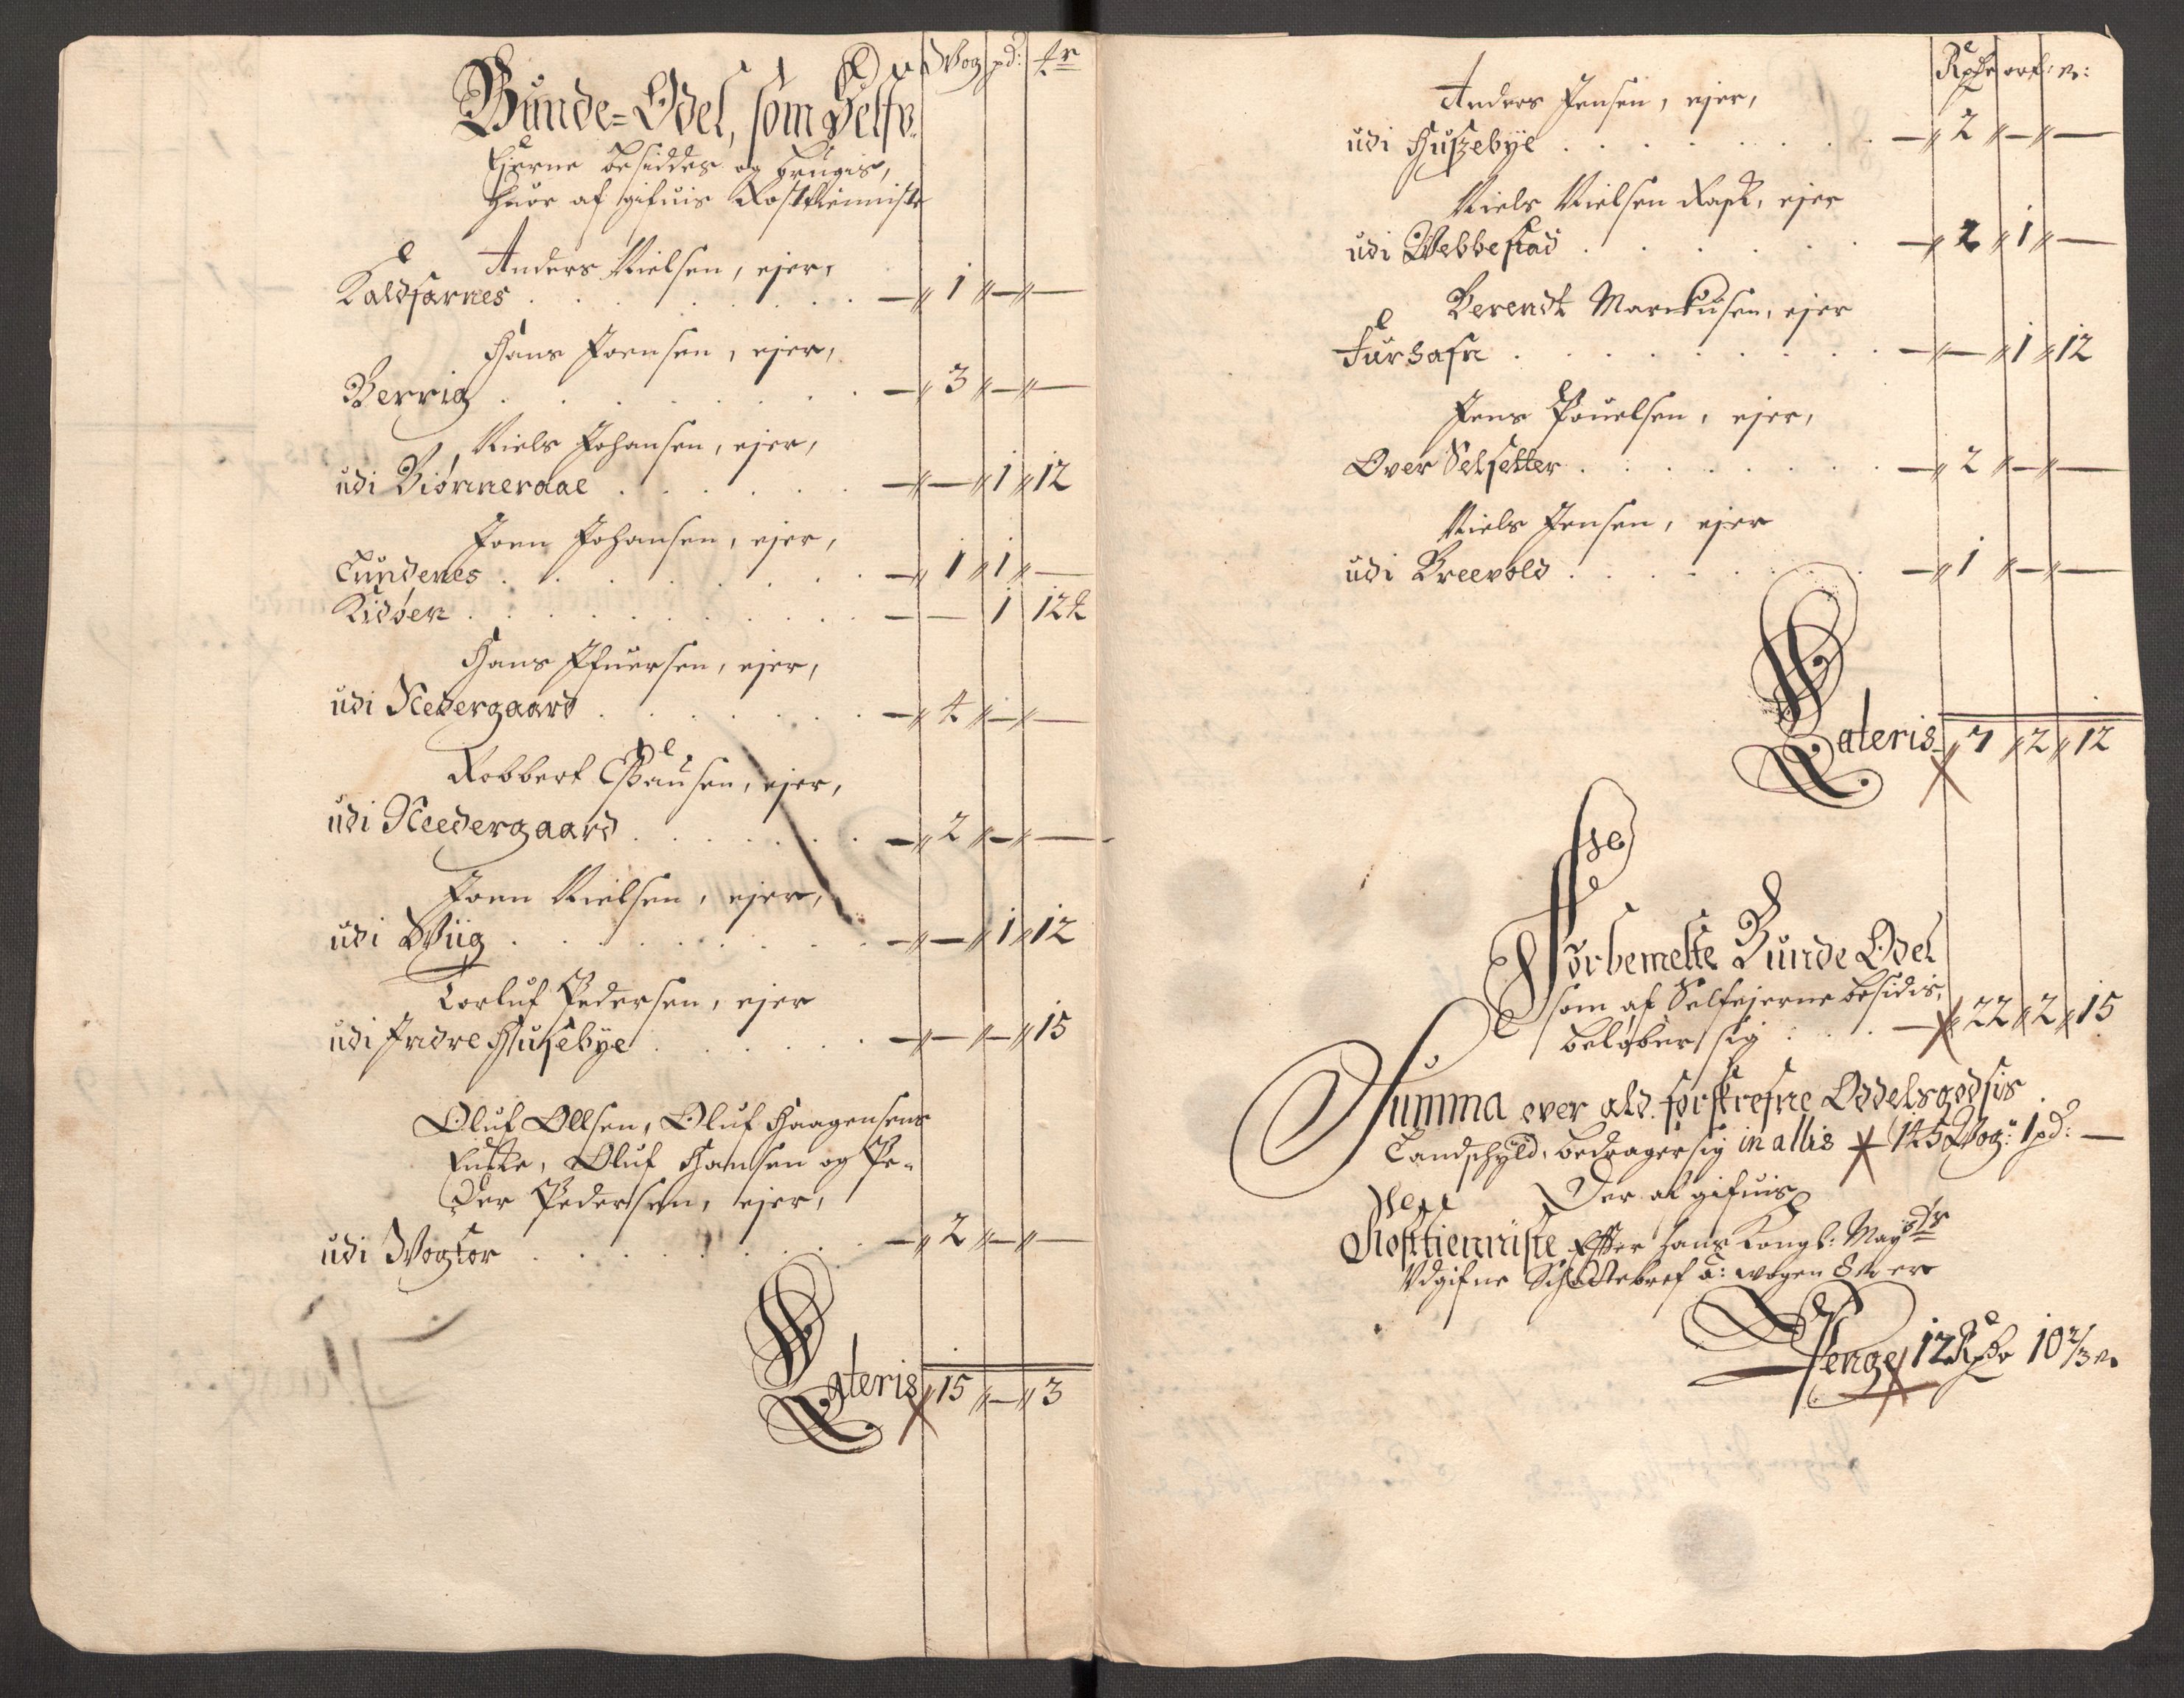 Wog pd: ℔r
Bunde=Odel, som Selfv
Ejerne besiddes og brugis,
Huor af gifuis Rosttienniste
Anders Nielsen, ejer,
Kaldsarnes . . . . . . . . — 1 — —
Hans Joensen, ejer,
Berrig . . . . . . . . — 3 — —
Niels Johansen, ejer,
udi Biørneraae . . . . . . — — 1 12
Joen Johansen, ejer,
Lundenes . . . . . . . . — 1 1 —
Kidøen . . . . . . . . — — 1 12
Hans Ifuersen, ejer,
udi Nedergaard . . . . . . — 4 — —
Robbert Clausen, ejer,
udi Needergaard . . . . . . — 2 — —
Joen Nielsen, ejer,
udi Wiig . . . . . . . . — — 1 12
Torluf Pedersen, ejer
udi Indre Husebye . . . . . — — — 15
Oluf Ollsen, Oluf Haagensens
Encke, Oluf Hansen og Pe-
der Pedersen, ejer,
udi Wogtor . . . . . . . . — 2 — —
Lateris 15 — 3
Rxdr ort: s:
Anders Jensen, ejer,
udi Huszebye . . . . . . . — 2 — —
Niels Nielsen Rask, ejer
udi Webbestad . . . . . . . — 2 1 —
Berendt Marckusen, ejer
Furhafn . . . . . . . . — — 1 12
Jens Pouelsen, ejer,
Over Selsetter . . . . . . . — 2 — —
Niels Jensen, ejer
udi Breevold . . . . . . . — 1 — —
Lateris 7 2 12
Forbemelte Bunde Odel
som af Selfejerne besidis,
beløber sig . . . . — 22 2 15
Summa over ald forskrefne Oddelsgodsis
Landschyld, bedrager sig in allis 145 Wog: 1 pd: —
Der af gifuis
Rosttienniste Efter Hans Kongl: Mayts
Udgifne Schattebref á: wogen 8 s er
Penge 12 Rxdr 10 2/3 s